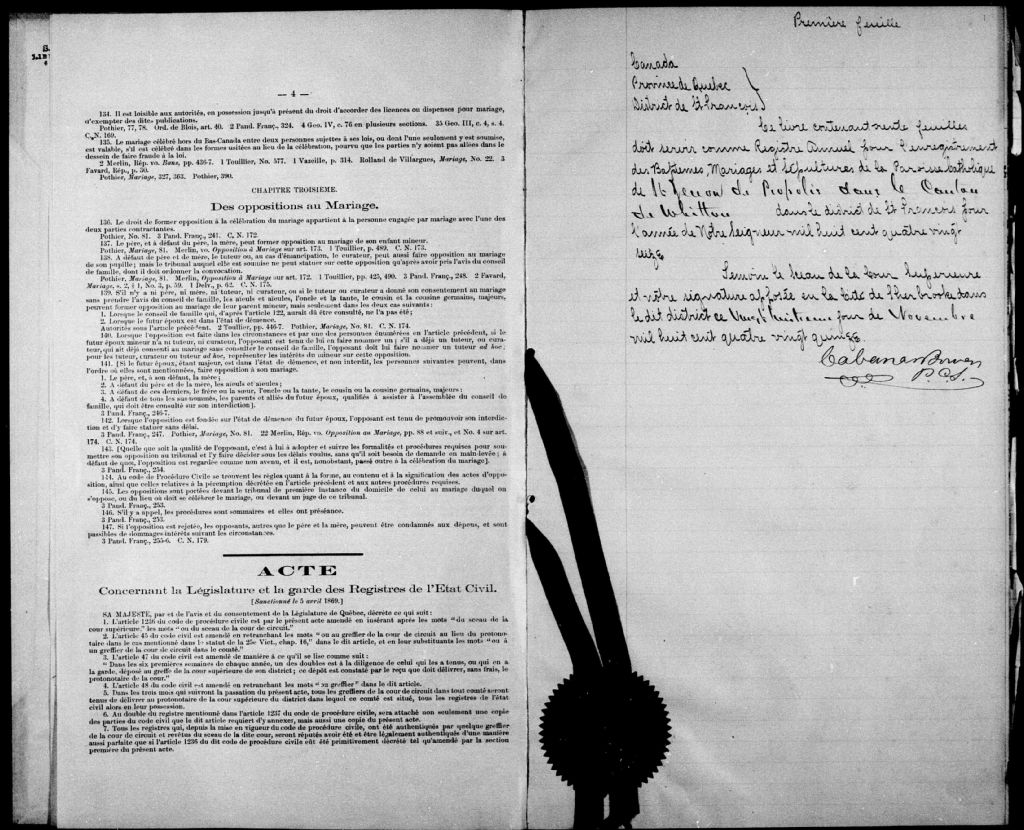 — 4 —
134. Il est loisible aux autorités, en possession jusqu'à présent du droit d'accorder des licences ou dispenses pour mariage,
d'exempter des dites publications.
Pothier, 77, 78. Ord. de Blois, art. 40. 2 Pand. Franç., 324. 4 Geo. IV, c. 76 en plusieurs sections. 35 Geo. III, c. 4, s. 4.
C. N. 169.
135. Le mariage célébré hors du Bas-Canada entre deux personnes sujettes à ses lois, ou dont l'une seulement y est soumise,
est valable, s'il est célébré dans les formes usitées au lieu de la célébration, pourvu que les parties n'y soient pas allées dans le
dessein de faire fraude à la loi.
2 Merlin, Rép. vo. Bans, pp. 436-7. 1 Touillier, No. 577. 1 Vazeille, p. 314. Rolland de Villargues, Mariage, No. 22. 3
Favard, Rép., p. 50.
Pothier, Mariage, 327, 363. Pothier, 390.
CHAPITRE TROISIEME.
Des oppositions au Mariage.
136. Le droit de former opposition à la célébration du mariage appartient à la personne engagée par mariage avec l'une des
deux parties contractantes.
Pothier, No. 81. 3 Pand. Franç., 241. C. N. 172.
137. Le père, et à défaut du père, la mère, peut former opposition au mariage de son enfant mineur.
Pothier, Mariage, 81. Merlin, vo. Opposition à Mariage sur art. 173. 1 Touillier, p. 489. C. N. 173.
138. A défaut de père et de mère, le tuteur ou, au cas d'émancipation, le curateur, peut aussi faire opposition au mariage
de son pupille; mais le tribunal auquel elle est soumise ne peut statuer sur cette opposition qu'après avoir pris l'avis du conseil
de famille, dont il doit ordonner la convocation.
Pothier, Mariage, 81. Merlin, Opposition à Mariage sur art. 172. 1 Touillier, pp. 425, 490. 3 Pand. Franç., 248. 2 Favard,
Mariage, s. 2, § 1, No. 3, p. 59. 1 Delv., p. 62. C. N. 175.
139. S'il n'y a ni père, ni mère, ni tuteur, ni curateur, ou si le tuteur ou curateur a donné son consentement au mariage
sans prendre l'avis du conseil de famille, les aïeuls et aïeules, l'oncle et la tante, le cousin et la cousine germains, majeurs,
peuvent former opposition au mariage de leur parent mineur, mais seulement dans les deux cas suivants:
1. Lorsque le conseil de famille qui, d'après l'article 122, aurait dû être consulté, ne l'a pas été;
2. Lorsque le futur époux est dans l'état de démence.
Autorités sous l'article précédent. 2 Touillier, pp. 446-7. Pothier, Mariage, No. 81. C. N. 174.
140. Lorsque l'opposition est faite dans les circonstances et par une des personnes énumérées en l'article précédent, si le
futur époux mineur n'a ni tuteur, ni curateur, l'opposant est tenu de lui en faire nommer un; s'il a déjà un tuteur, ou cura-
teur, qui ait déjà consenti au mariage sans consulter le conseil de famille, l'opposant doit lui faire nommer un tuteur ad hoc;
pour les tuteur, curateur ou tuteur ad hoc, représenter les intérêts du mineur sur cette opposition.
141. [Si le futur époux, étant majeur, est dans l'état de démence, et non interdit, les personnes suivantes peuvent, dans
l'ordre où elles sont mentionnées, faire opposition à son mariage.
1. Le père, et, à son défaut, la mère;
2. A défaut du père et de la mère, les aïeuls et aïeules;
3. A défaut de ces derniers, le frère ou la sœur, l'oncle ou la tante, le cousin ou la cousine germains, majeurs;
4. A défaut de tous les sus-nommés, les parents et alliés du futur époux, qualifiés à assister à l'assemblée du conseil de
famille, qui doit être consulté sur son interdiction].
3 Pand. Franç., 246-7.
142. Lorsque l'opposition est fondée sur l'état de démence du futur époux, l'opposant est tenu de promouvoir son interdic-
tion et d'y faire statuer sans délai.
3 Pand. Franç., 247. Pothier, Mariage, No. 81. 22 Merlin, Rép. vo. Opposition au Mariage, pp. 88 et suiv., et No. 4 sur art.
174. C. N. 174.
143. [Quelle que soit la qualité de l'opposant, c'est à lui à adopter et suivre les formalités et procédures requises pour sou-
mettre son opposition au tribunal et l'y faire décider sous les délais voulus, sans qu'il soit besoin de demande en main-levée; à
défaut de quoi, l'opposition est regardée comme non avenu, et il est, nonobstant, passé outre à la célébration du mariage].
3 Pand. Franç., 254.
144. Au code de Procédure Civile se trouvent les règles quant à la forme, au contenu et à la signification des actes d'oppo-
sition, ainsi que celles relatives à la péremption décrétée en l'article précédent et aux autres procédures requises.
145. Les oppositions sont portées devant le tribunal de première instance du domicile de celui au mariage duquel on
s'oppose, ou du lieu où doit se célébrer le mariage, ou devant un juge de ce tribunal.
3 Pand. Franç., 253.
146. S'il y a appel, les procédures sont sommaires et elles ont préséance.
3 Pand. Franç., 253.
147. Si l'opposition est rejetée, les opposants, autres que le père et la mère, peuvent être condamnés aux dépens, et sont
passibles de dommages intérêts suivant les circonstances.
3 Pand. Franç., 255-6. C. N. 179.
ACTE
Concernant la Législature et la garde des Registres de l'Etat Civil.
[Sanctionné le 5 avril 1869.]
SA MAJESTÉ, par et de l'avis et du consentement de la Législature de Québec, décrète ce qui suit:
1. L'article 1236 du code de procédure civile est par le présent acte amendé en insérant après les mots "du sceau de la
cour supérieure," les mots "ou du sceau de la cour de circuit."
2. L'article 45 du code civil est amendé en retranchant les mots "ou au greffier de la cour de circuit au lieu du protono-
taire dans le cas mentionné dans le statut de la 25e Vict., chap. 16," dans le dit article, et en leur substituant les mots "ou à
un greffier de la cour de circuit dans le comté."
3. L'article 47 du code civil est amendé de manière à ce qu'il se lise comme suit:
"Dans les six premières semaines de chaque année, un des doubles est à la diligence de celui qui les a tenus, ou qui en a
la garde, déposé au greffe de la cour supérieure de son district; ce dépôt est constaté par le reçu que doit délivrer, sans frais, le
protonotaire de la cour."
4. L'article 48 du code civil est amendé en retranchant les mots "ou greffier" dans le dit article.
5. Dans les trois mois qui suivront la passation du présent acte, tous les greffiers de la cour de circuit dans tout comté seront
tenus de délivrer au protonotaire de la cour supérieure du district dans lequel ce comté est situé, tous les registres de l'état
civil alors en leur possession.
6. Au double du registre mentionné dans l'article 1237 du code de procédure civile, sera attaché non seulement une copie
des parties du code civil que le dit article requiert d'y annexer, mais aussi une copie du présent acte.
7. Tous les registres qui, depuis la mise en vigueur du code de procédure civile, ont été authentiqués par quelque greffier
de la cour de circuit et revêtus du sceau de la dite cour, seront réputés avoir été et être légalement authentiqués d'une manière
aussi parfaite que si l'article 1236 du dit code de procédure civile eût été primitivement décrété tel qu'amendé par la section
première du présent acte.
Première feuille
Canada
Province de Quebec
District de St François
Ce livre contenant trente feuilles
doit servir comme Registre Annuel pour l'enregistrement
des Baptemes, Mariages et Sépultures de la Paroisse Catholique
de St Zenon de Piopolis dans le Canton
de Whitton dans le district de St Francois pour
l'année de Notre Seigneur mil huit cent quatre vingt
seize
Temoin le sceau de la Cour Superieure
et notre signature apposée en la Cité de Sherbrooke dans
le dit district ce Vingt huitieme jour de Novembre
mil huit cent quatre vingt quinze
Cabana & Bowen
P.C.S.